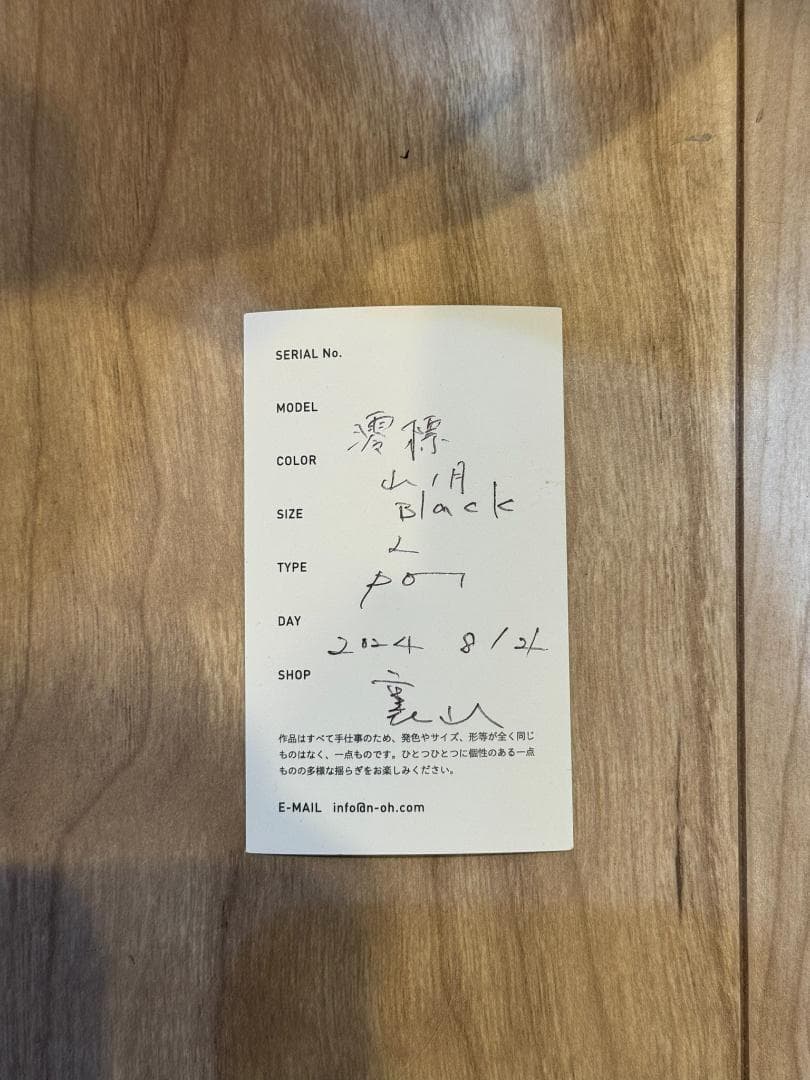 SERIAL No.
MODEL
澪標
COLOR
山月
Black
SIZE
L
TYPE
pot
DAY
2024 8/21
SHOP
裏山
作品はすべて手仕事のため、発色やサイズ、形等が全く同じ
ものはなく、一点ものです。ひとつひとつに個性のある一点
ものの多様な揺らぎをお楽しみください。
E-MAIL info@n-oh.com